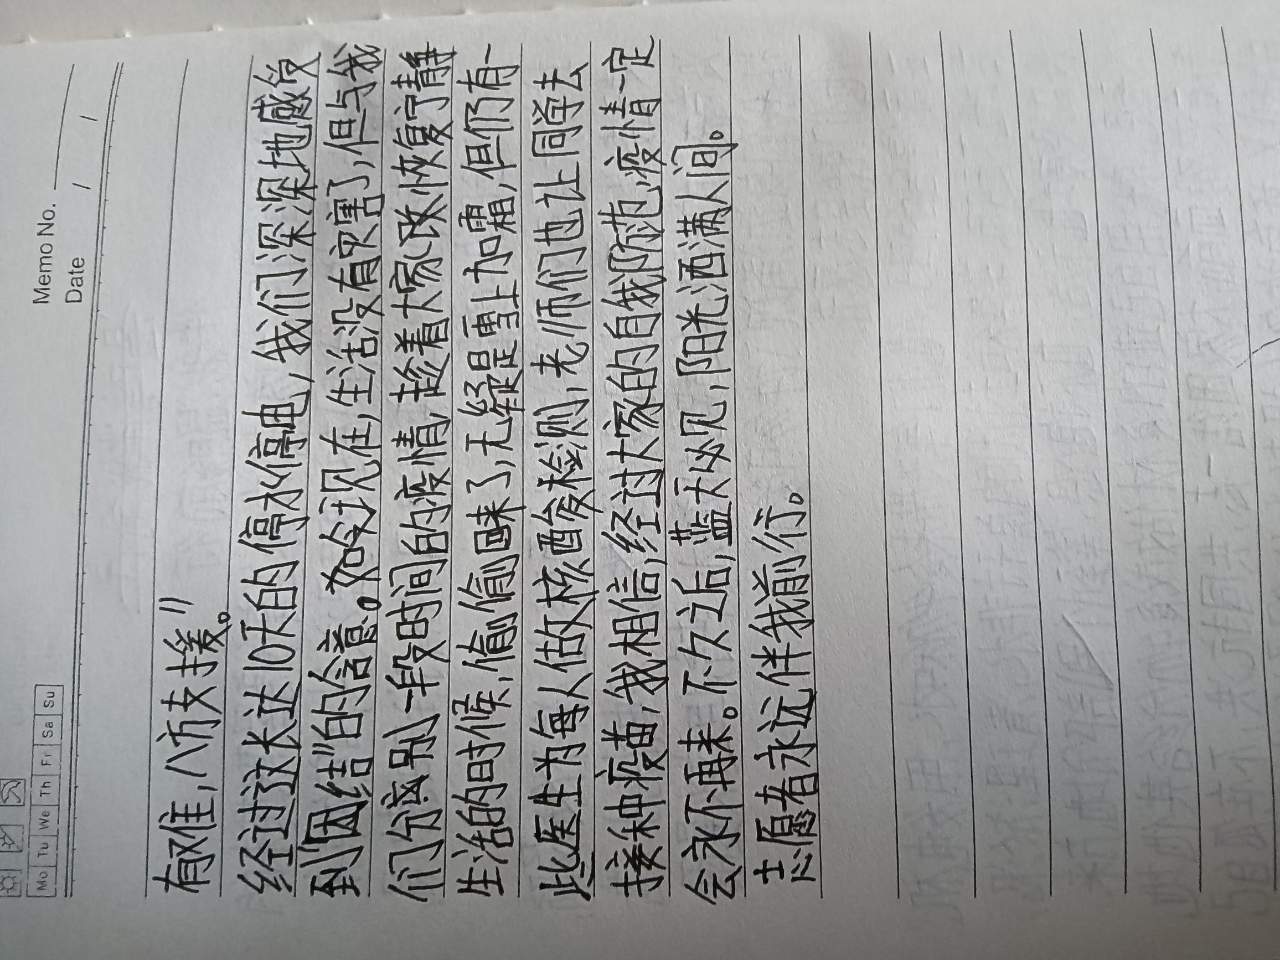 Memo No.
Date / /
Mo Tu We Th Fr Sa Su
有难,八方支援。"
经过这长达10天的停水停电,我们深深地感受
到"团结"的含意。如今现在,生活没有灾害了,但与我
们分离别一段时间的疫情,趁着大家以恢复宁静
生活的时候,偷偷回来了,无疑是雪上加霜,但仍有一
此医生为每人做核酸检测,老师们也让同学去
接种疫苗,我相信,经过大家的自我防范,疫情一定
会永不再来。不久之后,蓝天必见,阳光洒满人间。
志愿者永远伴我前行。